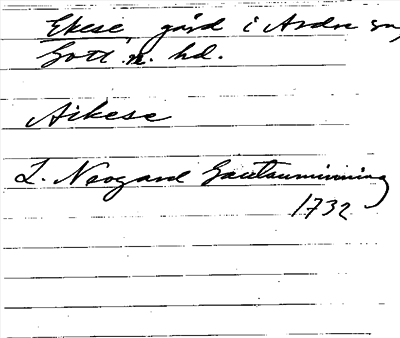 Ekese, gård i Ardre sn,
Gotl. n. hd.
Aikese
L. Neogard Gautauminning
1732